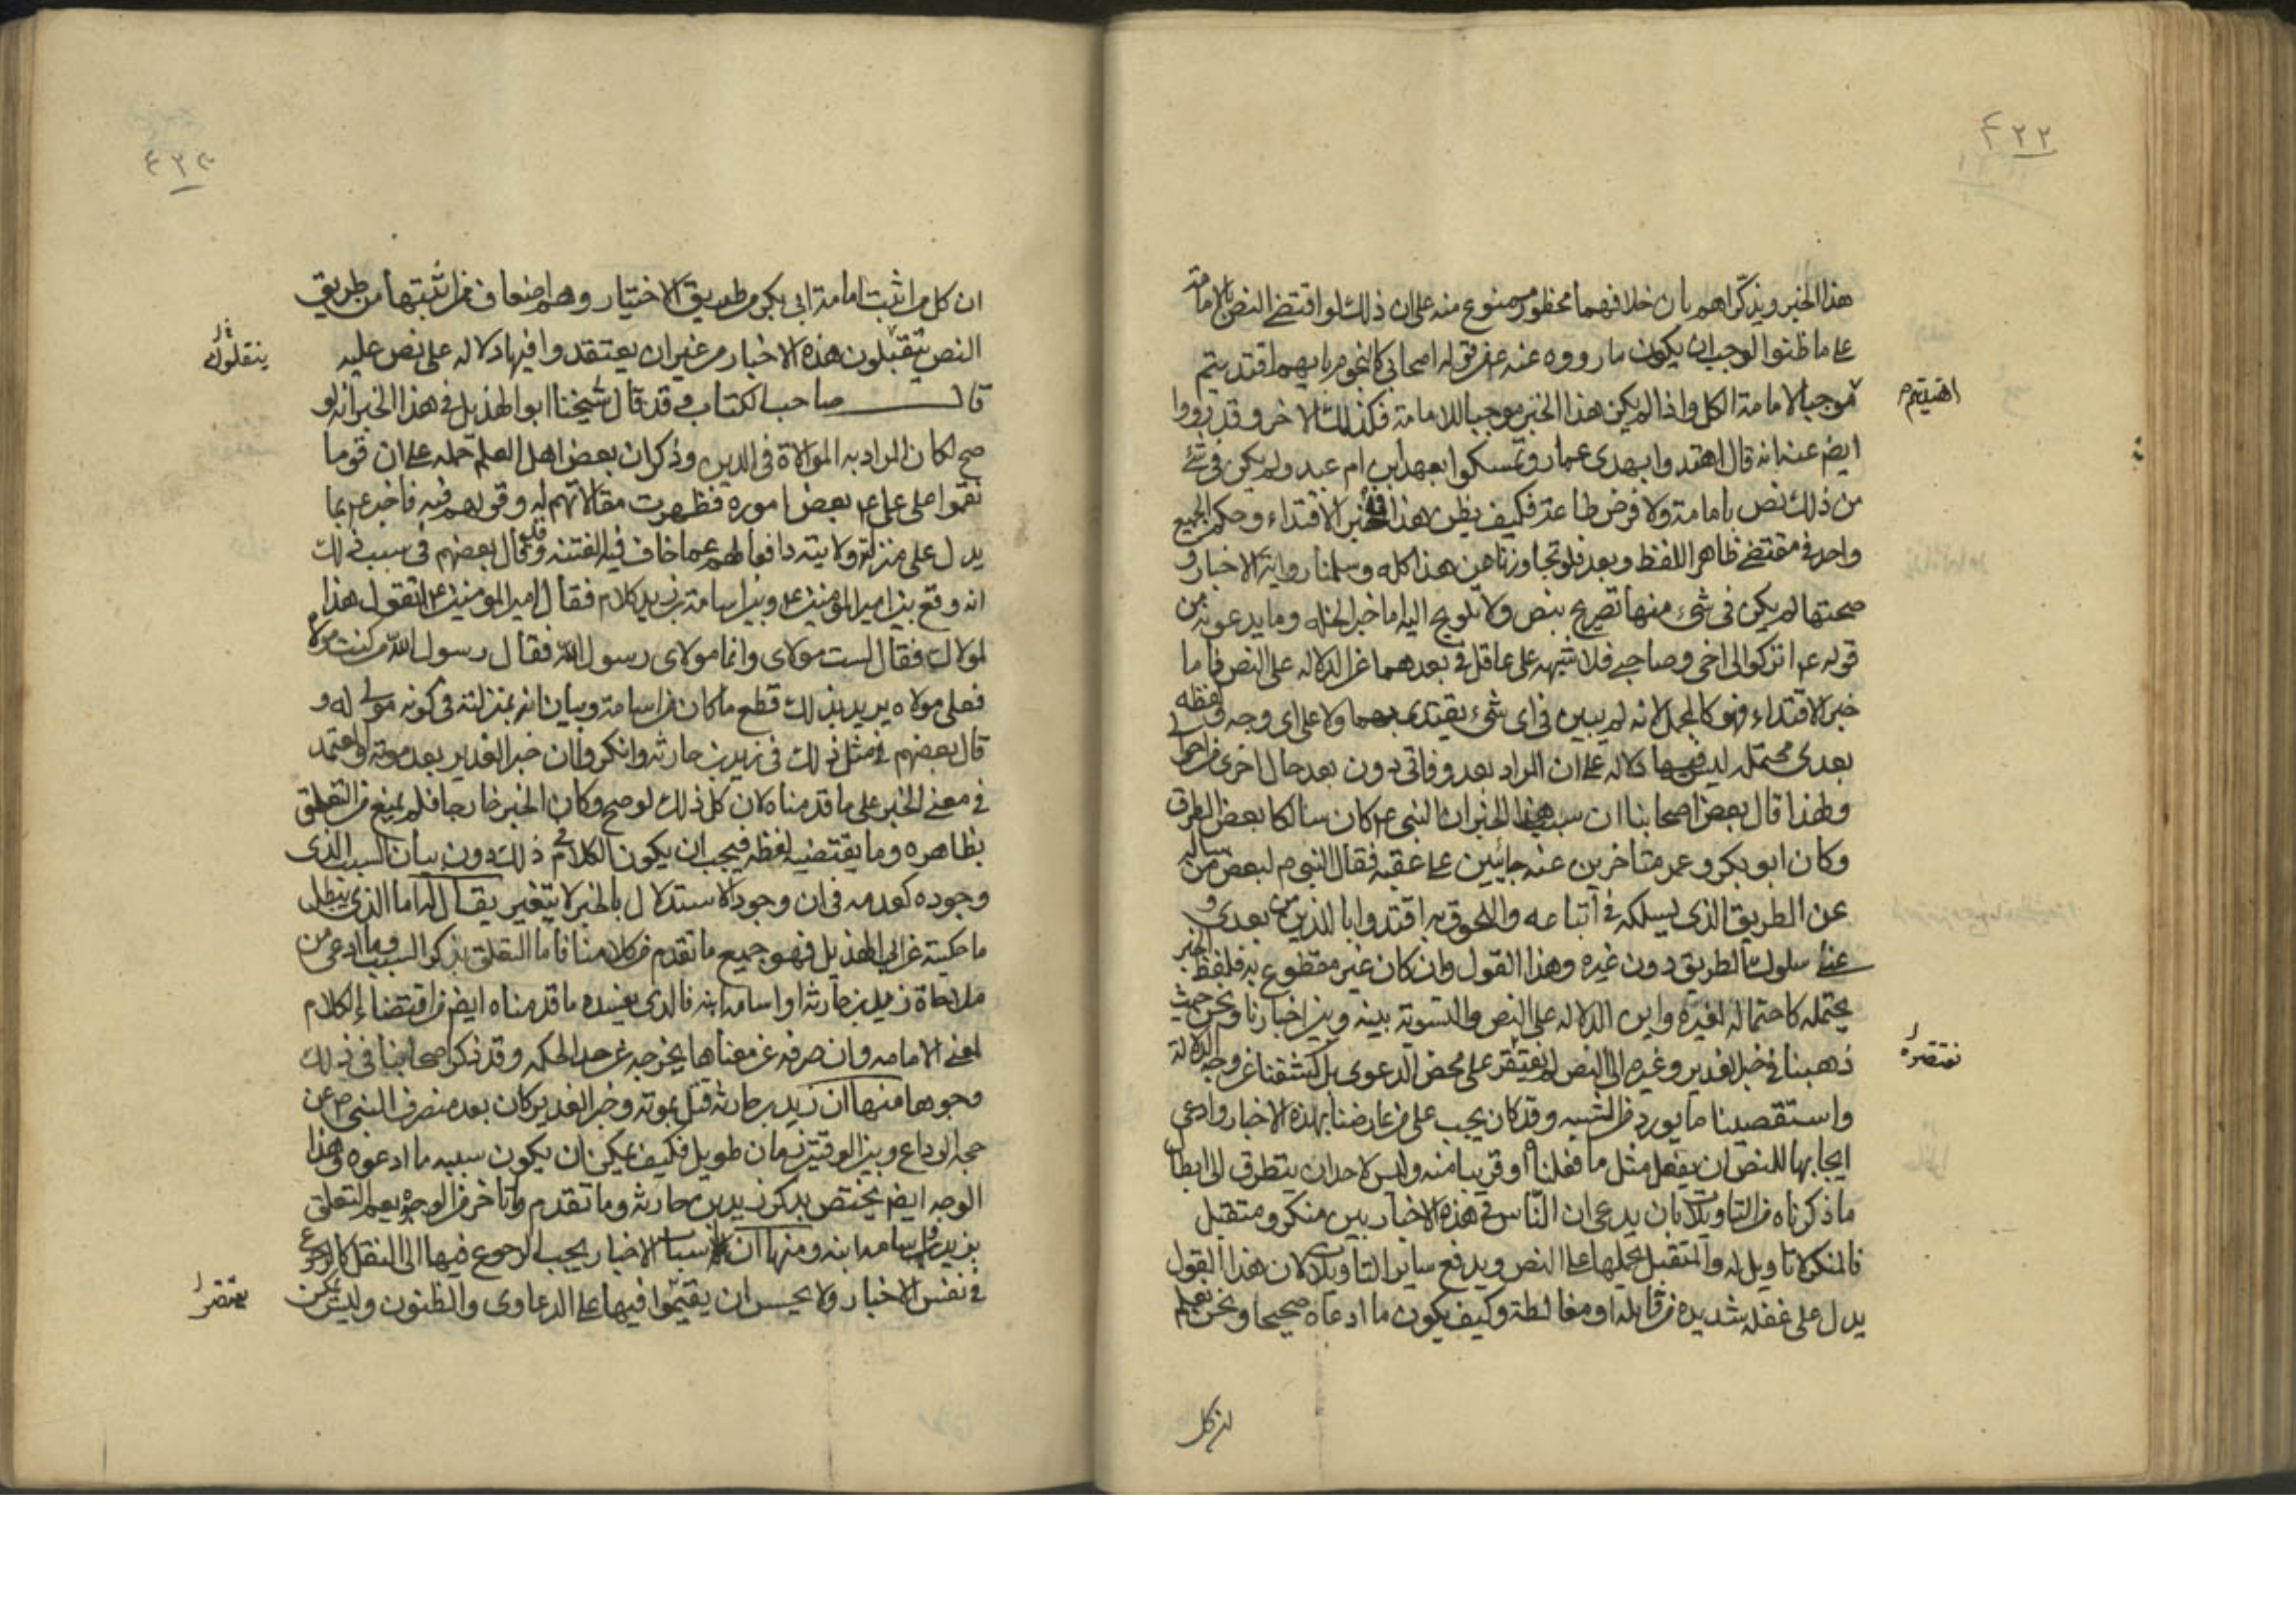 ٤٢٢
هذا الخبر ويذكراهم بان خلافهما محظور ممنوع منه على ان ذلك لو اقتضى النص بالامامة
على ما ظنوا لوجب ان يكون ما رووه عنه من قوله اصحابي كالنجوم بايهم اقتديتم
اهتديتم
موجبا لامامة الكل واذا لم يكن هذا الخبر موجبا للامامة فكذلك الاخر وقد رووا
ايض عنه انه قال اهتدوا بهدى عمار وتمسكوا بعهد ابن ام عبد ولم يكن في شئ
من ذلك نص بامامة ولا فرض طاعة فكيف يظن هذا في خبر الاقتداء وحكم الجميع
واحد في مقتضى ظاهر اللفظ وبعد فلو تجاوزنا عن هذا كله وسلمنا رواية الاخبار و
صحتها لم يكن في شيء منها تصريح بنص ولا تلويح اليه اما خبر الخلة وما يدعونه من
قوله ع اتركوا لي اخي وصاحبي فلا شبهه على عاقل في بعدهما عن الدلاله على النص فاما
خبر الاقتداء فهو كالمجمل لانه لم يبين في اي شيء يقتدى بهما ولا على اي وجه ولفظه
بعدي محتمله ليس فيها دلاله على ان المراد بعد وفاتي دون بعد حال اخرى من احوالي
ولهذا قال بعض اصحابنا ان سبب هذا الخبر ان النبي ع كان سالكا بعض الطرق
وكان ابو بكر وعمر متاخرين عنه جائيين على عقبه فقال النبي ص لبعض من ساله
عن الطريق الذي يسلكه في اتباعه واللحوق به اقتدوا بالذين من بعدي و
عنى سلوك الطريق دون غيره وهذا القول وان كان غير مقطوع به فلفظ الخبر
يحتمله كاحتماله لغيره واين الدلاله على النص والتسوية بينه وبين اخبارنا ونحن حيث
ذهبنا في خبر الغدير وغيره الى النص لم نفتقر على محض الدعوى بل كشفنا عن وجه الدلالة
نقتصر
واستقصينا ما يورد من الشبه وقد كان يجب على من عارضنا بهذه الاخبار وادعى
ايجابها للنص ان يفعل مثل ما فعلناه او قريبا منه وليس لاحد ان يتطرق الى ابطال
ما ذكرناه من التاويلات بان يدعي ان الناس في هذه الاخبار بين منكر ومتقبل
فالمنكر لا تاويل له والمتقبل يحملها على النص ويدفع ساير التاويلات لان هذا القول
يدل على غفله شديده من قايله او مغالطة وكيف يكون ما ادعاه صحيحا ونحن نعلم
ان كل
٤٢٣
ان كل من اثبت امامة ابي بكر من طريق الاختيار وهم اضعاف من اثبتها من طريق
النص يتقبلون هذه الاخبار من غير ان يعتقدوا فيها دلاله على نص عليه
ينقلون
قال صاحب الكتاب وقد قال شيخنا ابو الهذيل في هذا الخبر انه لو
صح لكان المراد به الموالاة في الدين وذكر ان بعض اهل العلم حمله على ان قوما
نقموا على علي ع بعض اموره فظهرت مقالاتهم له وقولهم فيه فاخبر ع بما
يدل على منزلته وولايته دافعا لهم عما خاف فيه الفتنه وقد قال بعضهم في سبب ذلك
انه وقع بين امير المومنين ع وبين اسامة بن زيد كلام فقال امير المومنين ع اتقول هذا
لمولاك فقال لست مولاي وانما مولاي رسول الله فقال رسول الله من كنت مولاه
فعلي مولاه يريد بذلك قطع ما كان من اسامة وبيان انه بمنزلته في كونه مولى له و
قال بعضهم في مثل ذلك في زيد بن حارثه وانكروا ان خبر الغدير بعد موته والمعتمد
في معنى الخبر على ما قدمناه لان كل ذلك لو صح وكان الخبر خارجا فلم يمنع من التعلق
بظاهره وما يقتضيه لفظه فيجب ان يكون الكلام في ذلك دون بيان السبب الذي
وجوده كعدمه في ان وجود الاستدلال بالخبر لا يتغير يقال له اما الذي يبطل
ما حكيته عن ابي الهذيل فهو جميع ما تقدم من كلامنا فاما التعلق بذكر السبب وما ادعي من
ملاحاة زيد بن حارثه او اسامه ابنه فالذي يفسده ما قدمناه ايض من اقتضاء الكلام
لمعنى الامامه وان صرفه عن معناها يخرجه عن حد الحكمه وقد ذكر اصحابنا في ذلك
وجوها منها ان زيد بن حارثه قتل بموته وخبر الغدير كان بعد منصرف النبي ص عن
حجة الوداع وبين الوقتين زمان طويل فكيف يمكن ان يكون سببه ما ادعوه وهذا
الوجه ايض يختص بذكر زيد بن حارثه وما تقدم وتاخر من الوجوه يعم التعلق
بزيد واسامه ابنه ومنها ان اسباب الاخبار يجب الرجوع فيها الى النقل كالرجوع
في نفس الاخبار ولا يحسن ان يقتموا فيها على الدعاوى والظنون وليس يمكن
يقتصر